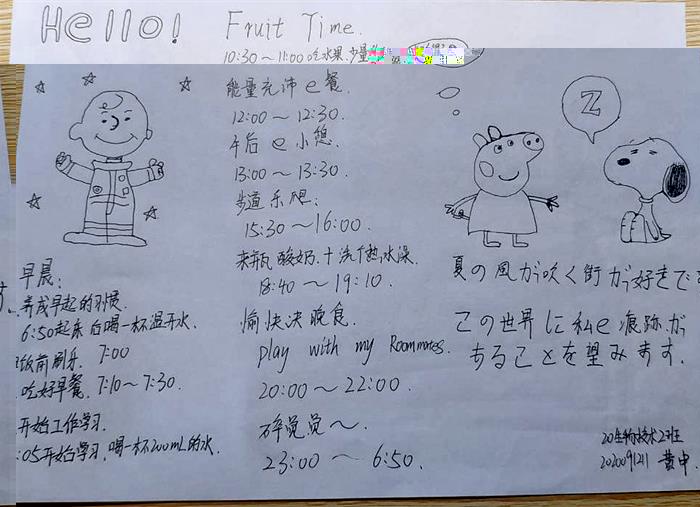 Hello!
Fruit Time.
10:30～11:00 吃水果.少量
能量充沛e餐.
12:00～12:30.
午后e小憩.
13:00～13:30.
步道乐跑:
15:30～16:00.
来瓶酸奶.十洗个热水澡.
18:40～19:10.
愉快决晚食.
play with my Roommates.
20:00～22:00.
碎觉觉～.
23:00～6:50.
早晨:
养成早起的习惯.
6:50起床后喝一杯温开水.
饭前刷牙. 7:00
吃好早餐. 7:10～7:30.
开始工作学习.
:05开始学习.喝一杯200mL的水.
Z
夏の風が吹く街が好きで
この世界に私e痕跡が
あることを望みます.
20生物技术2班
2020091211 黄中